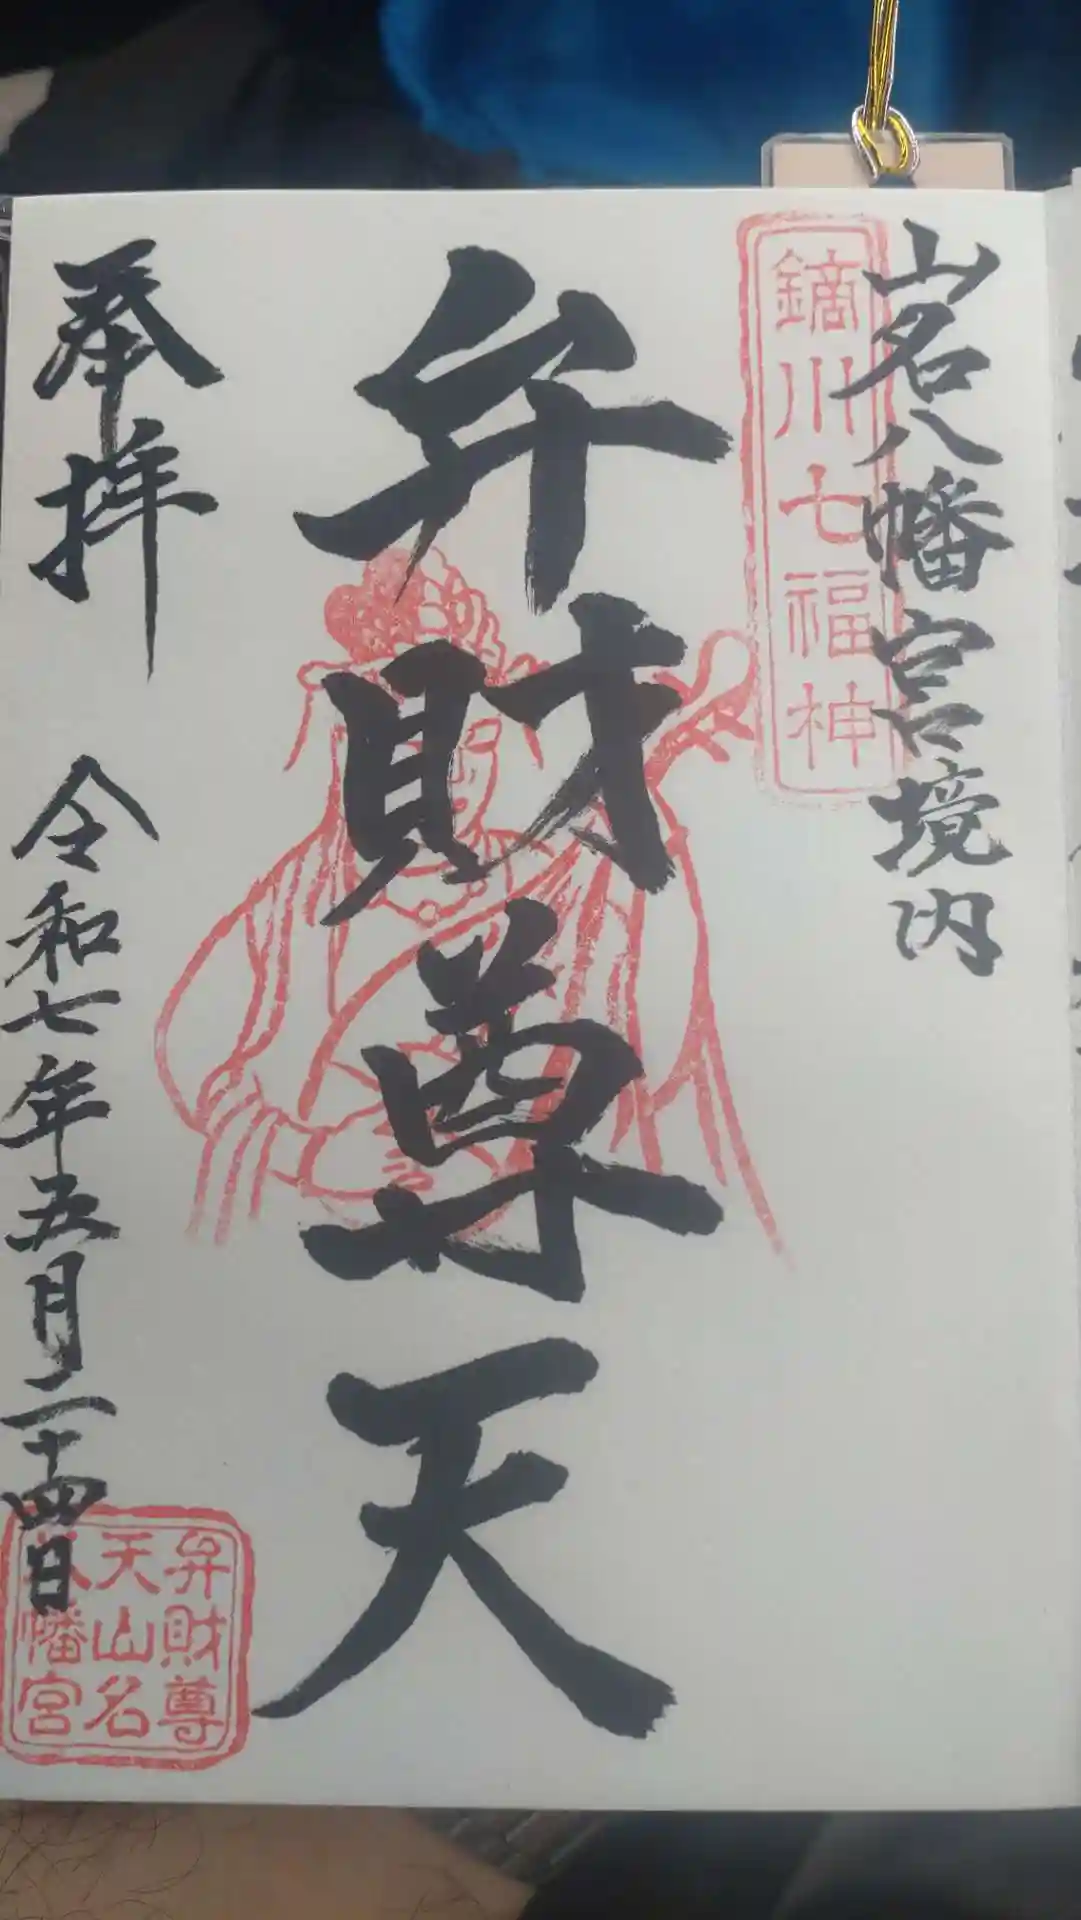 山名八幡宮境内
鏑川七福神
弁財尊天
奉拝
令和七年五月二十四日
弁財尊
天山名
八幡宮